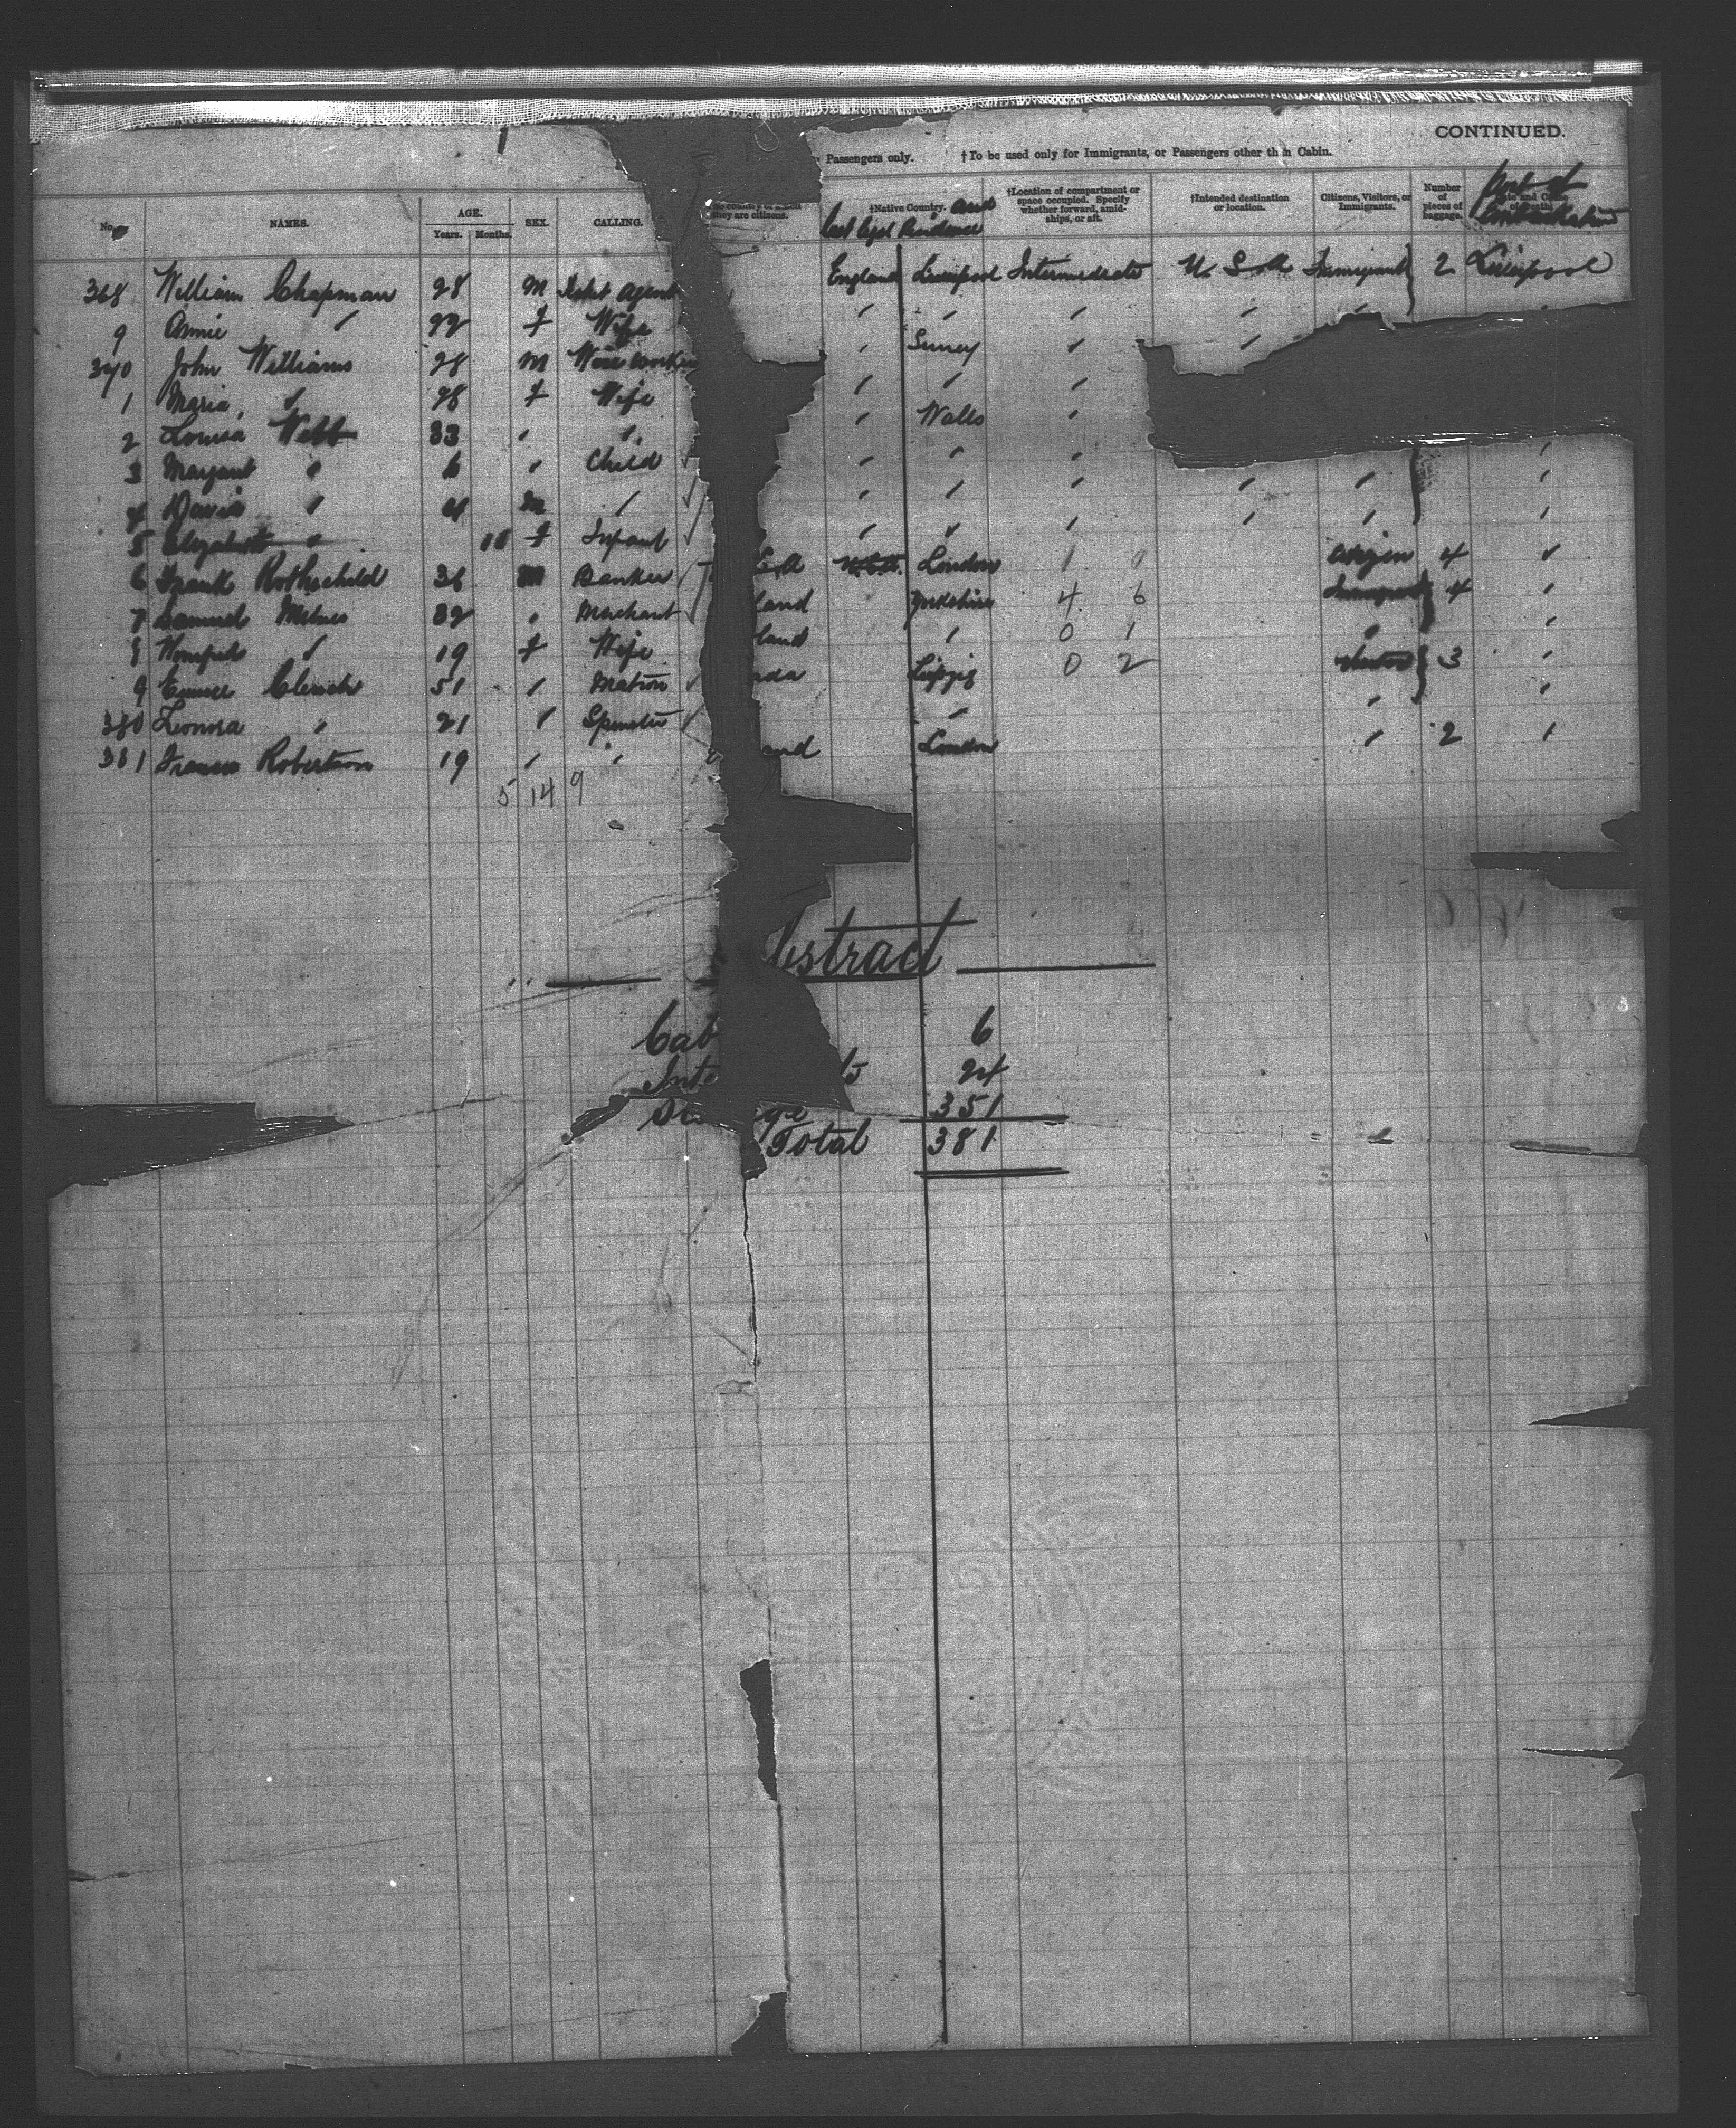 CONTINUED.
Passengers only. †To be used only for Immigrants, or Passengers other than Cabin.
No. NAMES. AGE. Years. Months. SEX. CALLING. they are citizens. †Native Country. and last legal Residence †Location of compartment or space occupied. Specify whether forward, amidships, or aft. †Intended destination or location. Citizens, Visitors, or Immigrants. Number of pieces of baggage. Port of Embarkation
368 William Chapman 28 M Agent England Liverpool Intermediate U.S.A Immigrant 2 Liverpool
9 Annie " 22 f Wife " " " " "
370 John Williams 28 M " Surrey " "
1 Maria " 28 f Wife " " "
2 Louisa Webb 33 " " " Walls "
3 Margaret " 6 " Child " " " "
4 David " 4 M " " " " " " "
5 Elizabeth " 10 f Infant " " " " " "
6 Frank Rothschild 36 M Banker S.A U.S.A. London 1 0 Citizen 4 "
7 Samuel Milnes 32 " Merchant land Yorkshire 4 6 Immigrant 4 "
8 " 19 f Wife land " 0 1 " "
9 51 " Matron ada Leipzig 0 2 Visitor 3 "
380 Leonora " 21 " Spinster " " "
381 Frances Robertson 19 " " and London " 2 "
5 14 9
bstract
Cab 6
Inte ts 24
St ge 351
Total 381